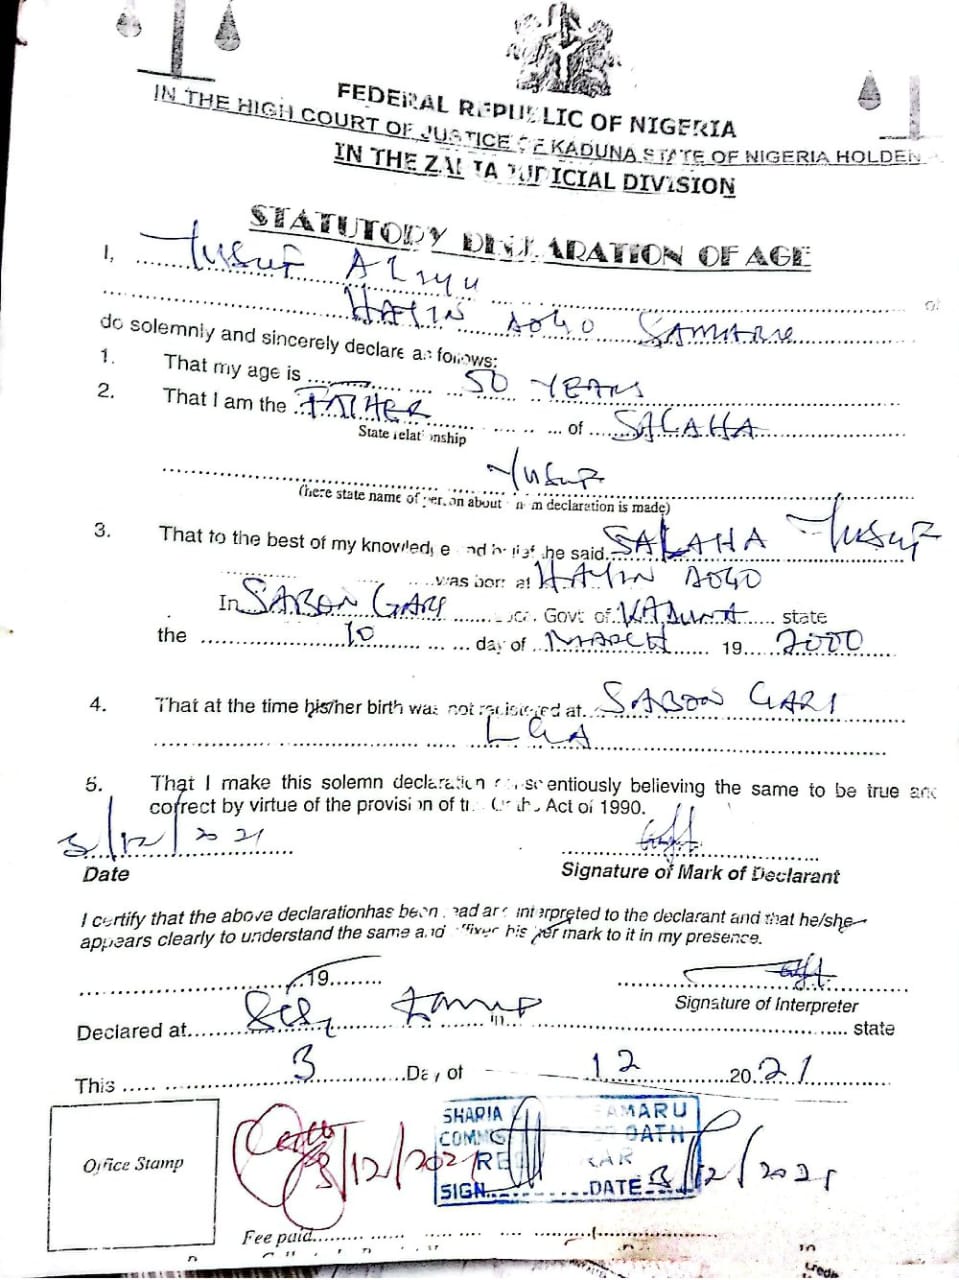 FEDERAL REPUBLIC OF NIGERIA
IN THE HIGH COURT OF JUSTICE OF KADUNA STATE OF NIGERIA HOLDEN
IN THE ZARIA JUDICIAL DIVISION
STATUTORY DECLARATION OF AGE
I, Yusuf Aliyu of
HAYIN DOGO SAMARU
do solemnly and sincerely declare as follows:
1. That my age is 50 YEARS
2. That I am the FATHER of SALAHA
State relationship
Yusuf
(here state name of person about whom declaration is made)
3. That to the best of my knowledge and belief the said SALAHA Yusuf
was born at HAYIN DOGO
In SABON GARI Loc. Govt of KADUNA state
the 10 day of MARCH 19 2000
4. That at the time his/her birth was not registered at SABON GARI
LGA
5. That I make this solemn declaration conscientiously believing the same to be true and
correct by virtue of the provision of the Oaths Act of 1990.
3/12/2021
Date
Signature of Mark of Declarant
I certify that the above declarationhas been read and interpreted to the declarant and that he/she
appears clearly to understand the same and affixes his/her mark to it in my presence.
19
Signature of Interpreter
Declared at in state
This 3 Day of 12 2021
Office Stamp
3/12/2021
SHARIA SAMARU
OATH
SIGN DATE 3/12/2021
Fee paid